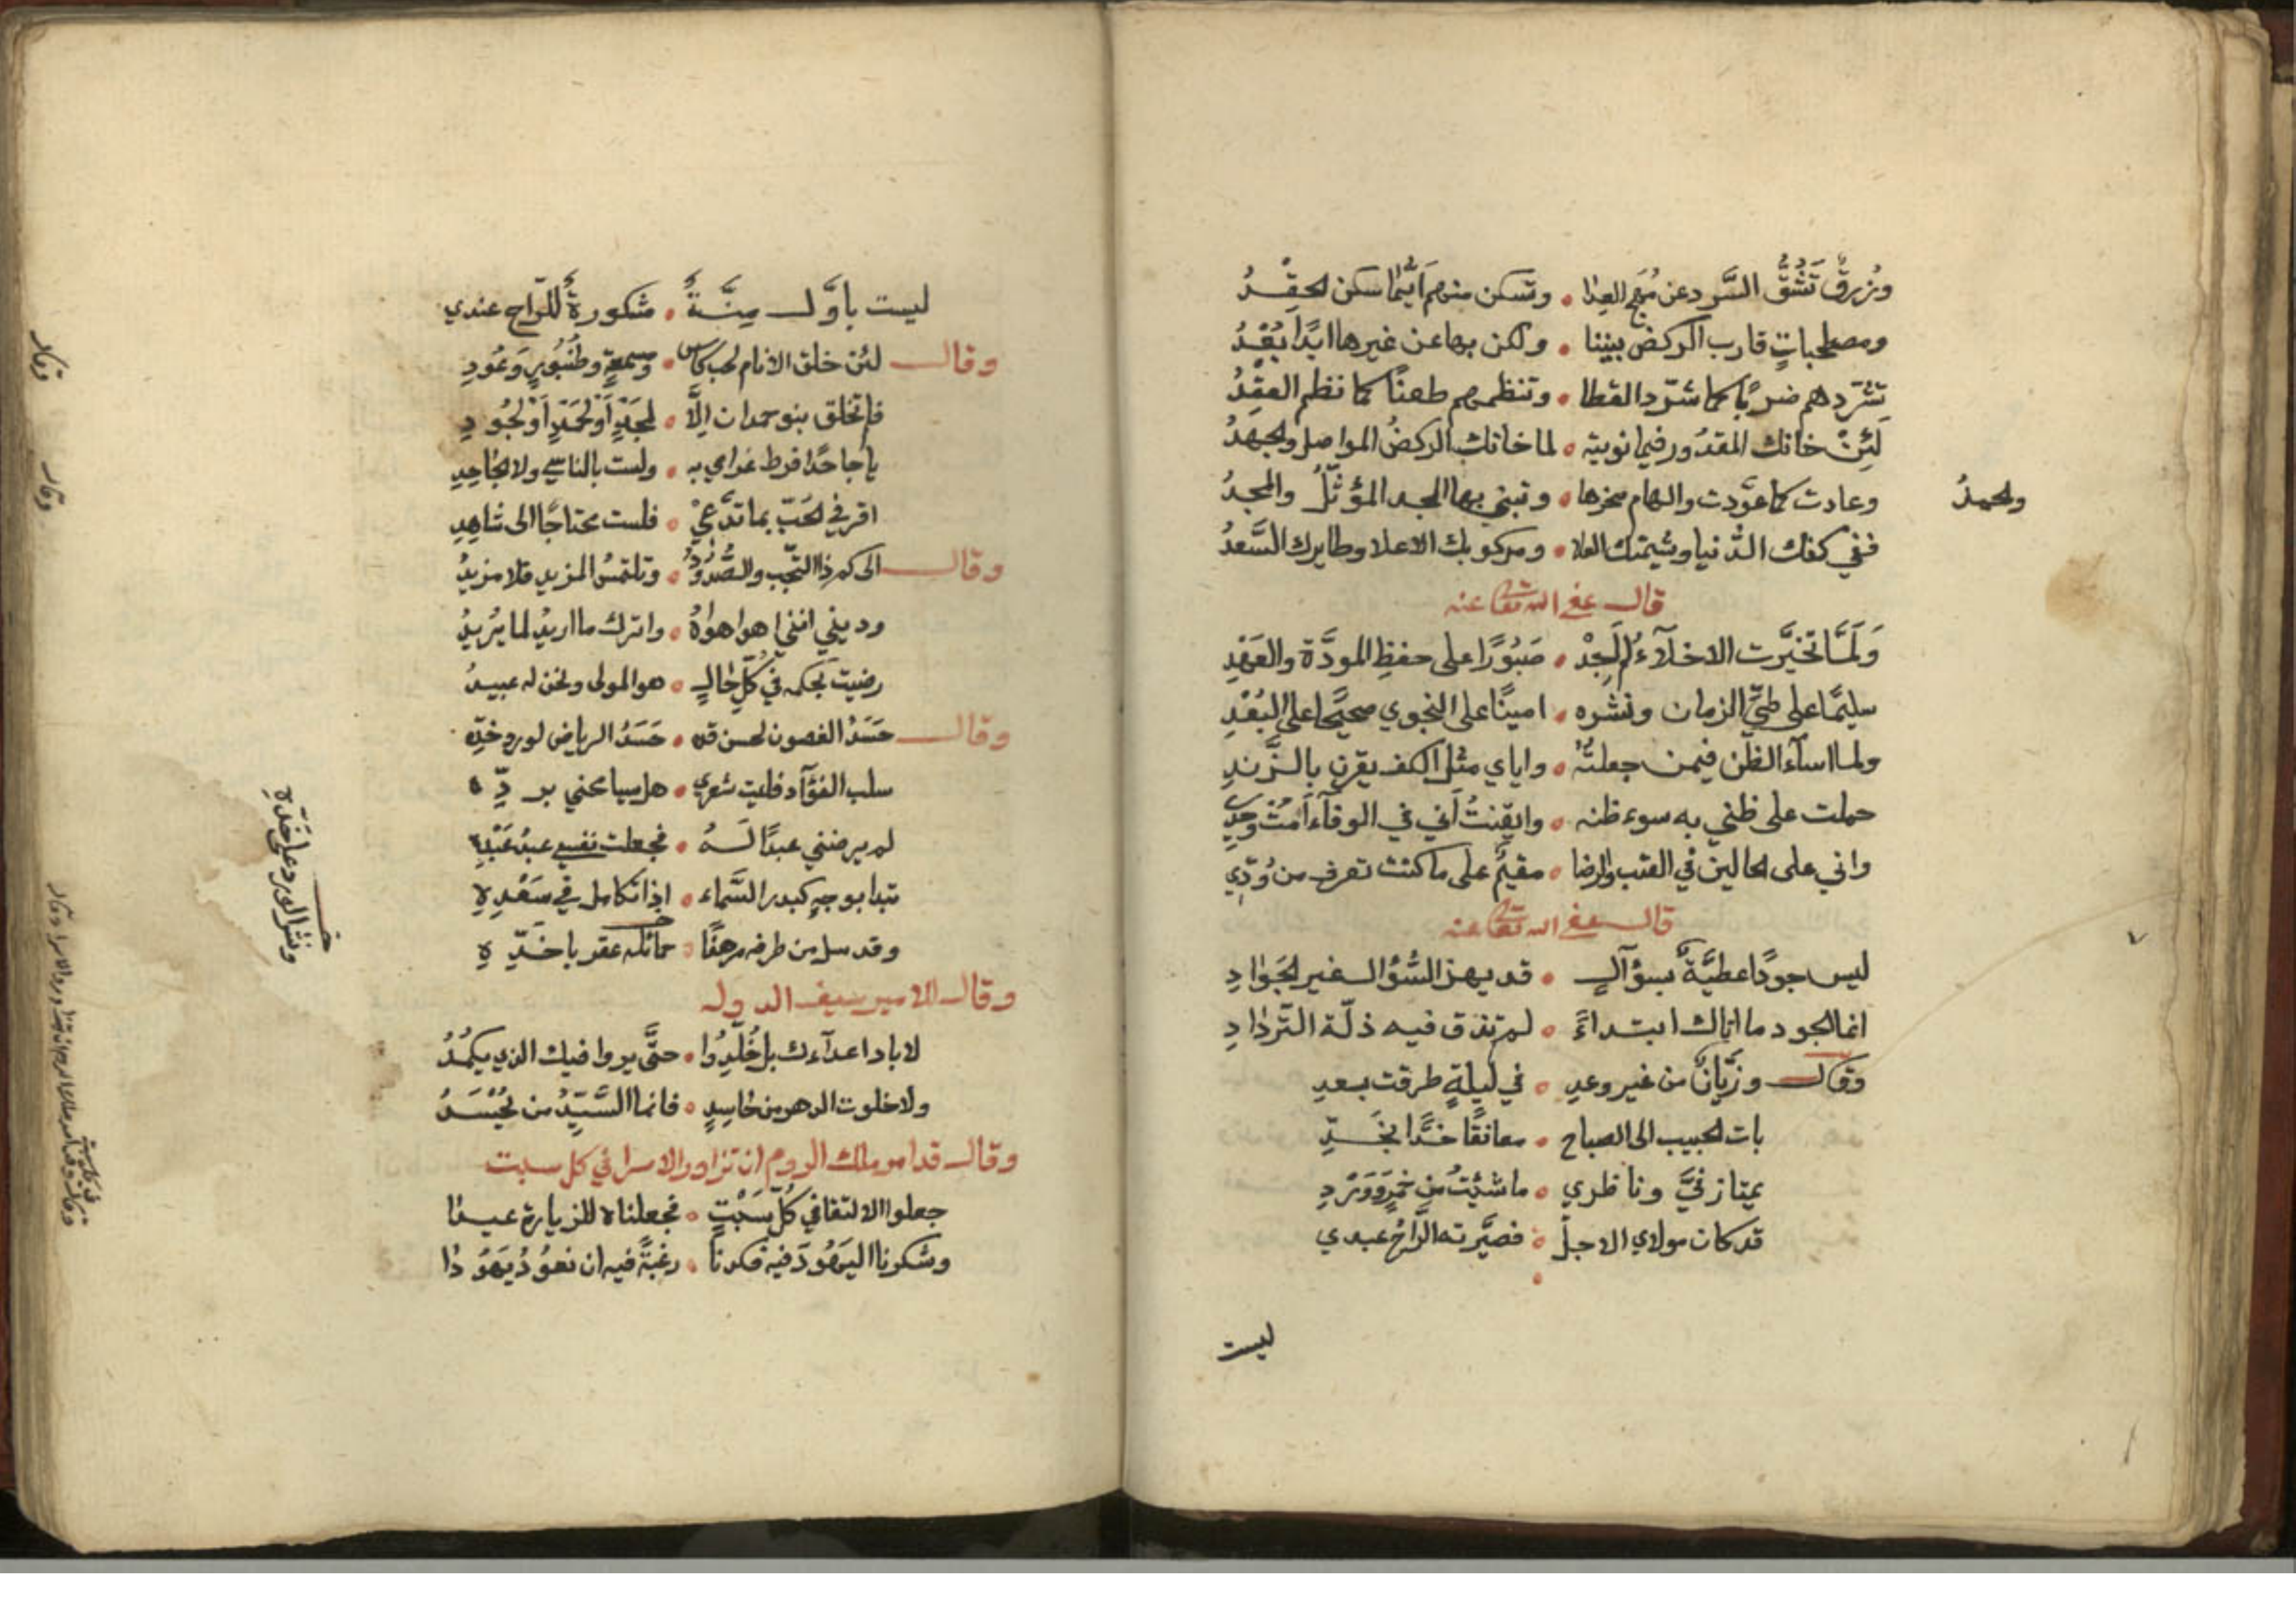 وزرق تَشُقُّ السَّرد عن مُهَج العِدا ۰ وتسكن منهم اَيّنما سكن الحِقدُ
ومصطحباتٍ قارب الركض بيننا ۰ ولكن بها عن غيرها ابدًا بُعْدُ
تشرّدهم ضربًا كما شرّد القطا ۰ وتنظمهم طعنًا كما نظم العِقدُ
لَئِنْ خانك المقدُور فيما نويته ۰ لما خانك الركضُ المواصل والجهدُ
وعادت كما عوّدت والهام صخرها ۰ وتبني بها المجد المؤثّلُ والمجدُ
والحمدُ
ففي كفك الدُّنيا وشيمتك العلا ۰ ومركوبك الاعلا وطايرك السَّعدُ
قال عفى الله تعالى عنه
وَلَمَّا تخيَّرت الاخلّاءُ لم اَجِدْ ۰ صَبُورًا على حفظِ المودَّة والعَهْدِ
سليمًا على طيِّ الزمان ونشره ۰ امينًا على النجوي صحيحًا على البُعْدِ
ولما اساء الظن فيمن جعلتهُ ۰ واياي مثل الكف يقرن بالزَّندِ
حملت على ظني به سوء ظنه ۰ وايقنتُ اَني في الوفاء اُمت وحدي
واني على الحالين في العتب والرضا ۰ مقيمٌ على ما كنت تعرف من وُدّي
قال عفى الله تعالى عنه
ليس جودًا عطيَّةٌ بسؤالٍ ۰ قد يهز السُّؤال غير الجَوادِ
انما الجود ما اتاك ابتداءً ۰ لم تذق فيه ذلّة التّردادِ
وقال وزَيَّانٌ من غير وعدٍ ۰ في ليلةٍ طرقت بسعدِ
بات الحبيب الى الصباح ۰ معانقًا خدًّا بخَدِّ
يمتاز فيَّ وناظري ۰ ما شئتُ من خمرٍ ووَرْدِ
قد كان مولاي الاجلّ ۰ فصيّرته الرّاحُ عبدي
ليست
ليست باوَّل مِنَّةٍ ۰ مشكورةٌ للرّاح عندي
وقال لئن خلق الانام لحب كاس ۰ ومسمعةٍ وطُنْبُورٍ وَعُودِ
فلم تخلق بنو حمدان الّا ۰ لمجدٍ اَو لحمدٍ اَو لجُودِ
يا جاحدًا فرط غرامي به ۰ ولست بالناسي ولا الجاحدِ
اقر في الحبّ بما تدّعيْ ۰ فلست محتاجًا الى شاهدِ
وقال الى كم ذا التجنّب والصُّدُودُ ۰ وتلتمسُ المزيد فلا مزيدُ
وديني انني اهوا هواهُ ۰ واترك ما اريدُ لما يُريدُ
رضيت بحكمه في كلّ حالٍ ۰ هو المولى ونحن له عبيدُ
وقال حَسَدُ الغصون لحسن قده ۰ حَسَدُ الرياض لورد خدّه
سلب الفؤاد فليت شعري ۰ هل سيامحني بردّه
لم يرضني عبدًا لَهُ ۰ فجعلت نفسي عبدُ عَبْدِه
تبدا بوجهٍ كبدر السَّماء ۰ اذا تكامل في سَعْدِهِ
وقد سل من طرفه مرهفًا ۰ حمائله عقربا خَدِّهِ
ونثر الورد على خدّه
وقال الامير سيف الدوله
لا باد اعداءك بل خُلّدُوا ۰ حتَّى يروا فيك الذي يكمُدُ
ولا خلوت الدهر من حاسدٍ ۰ فانما السَّيّدُ من يُحْسَدُ
وقال قد امر ملك الروم ان تزاور الاسرا في كل سبت
جعلوا الالتقا في كُلّ سَبْتٍ ۰ فجعلناه للزيارة عيدا
وشكرنا اليَهُودَ فيه فكدنا ۰ رغبةً فيه ان نعُودُ يَهُودا
وقال
وقال